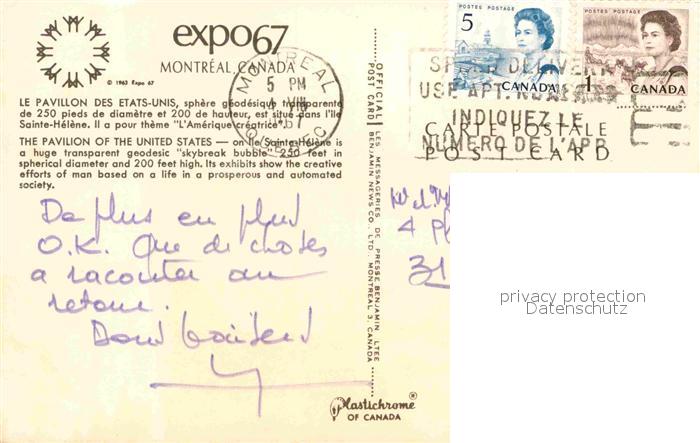 expo67
MONTRÉAL, CANADA
© 1963 Expo 67
LE PAVILLON DES ETATS-UNIS, sphère géodésique transparente
de 250 pieds de diamètre et 200 de hauteur, est situé dans l'île
Sainte-Hélène. Il a pour thème "L'Amérique créatrice".
THE PAVILION OF THE UNITED STATES — on Ile Sainte-Hélène is
a huge transparent geodesic "skybreak bubble" 250 feet in
spherical diameter and 200 feet high. Its exhibits show the creative
efforts of man based on a life in a prosperous and automated
society.
MONTREAL
5 PM
67
QUEBEC
De plus en plus
O.K. Que de choses
a raconter au
retour.
Bons baisers
Plastichrome ®
OF CANADA
OFFICIAL LES MESSAGERIES DE PRESSE BENJAMIN LTEE
POST CARD BENJAMIN NEWS CO., LTD. MONTREAL 3, CANADA
POSTES POSTAGE
5
CANADA
POSTES POSTAGE
1
CANADA
USE APT. NUMBERS
INDIQUEZ LE
NUMÉRO DE L'APP
CARTE POSTALE
POST CARD
4 Pl
31
privacy protection
Datenschutz